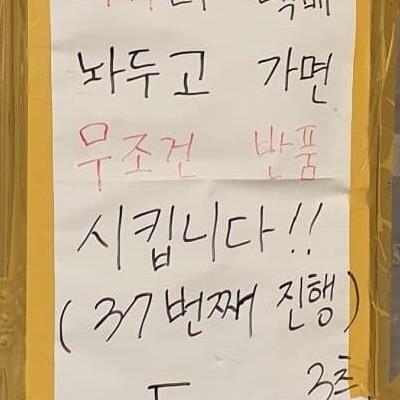 놔두고 가면
무조건 반품
시킵니다!!
(37번째 진행)